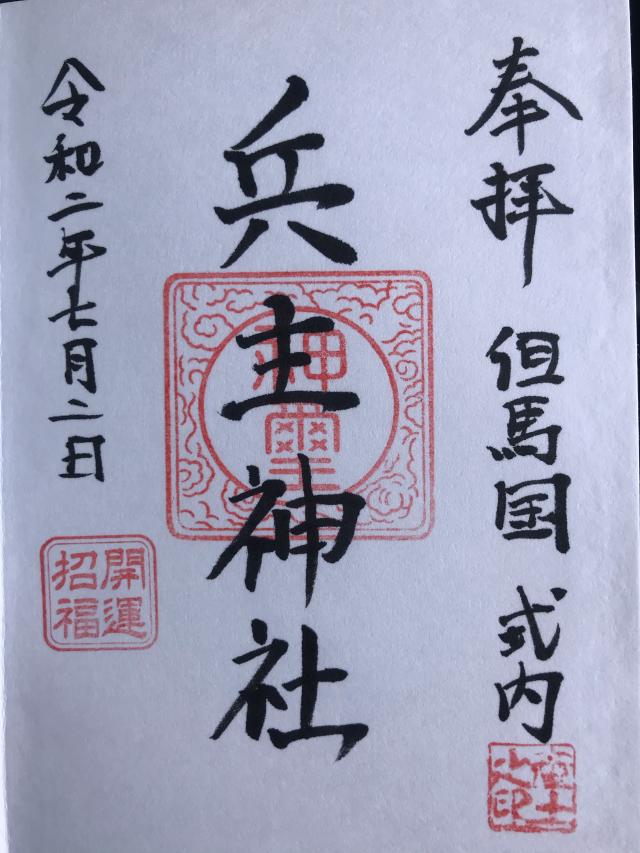 奉拝 但馬国 式内
兵主神社
神璽
令和二年七月二日
開運
招福